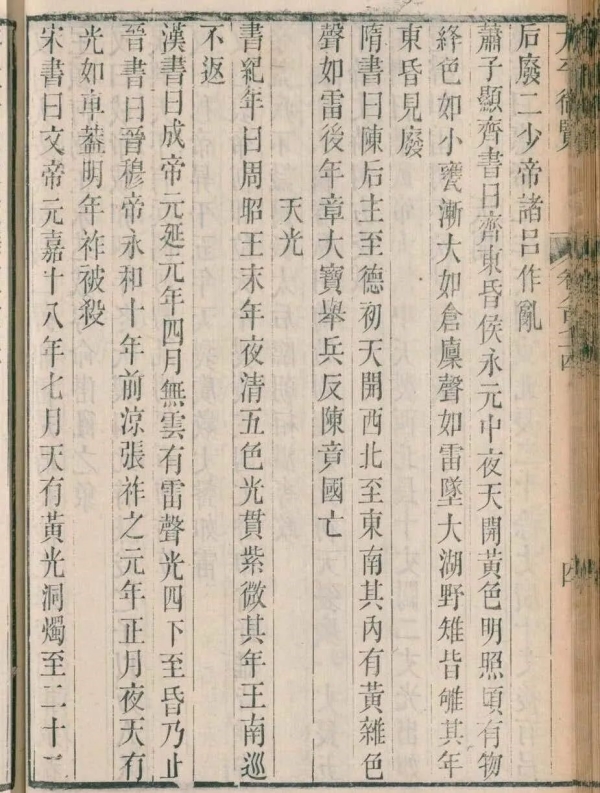 太平御覽
四
后廢二少帝諸呂作亂
蕭子顯齊書曰齊東昏侯永元中夜天開黃色明照頃有物
絳色如小甕漸大如倉廩聲如雷墜大湖野雉皆雊其年
東昏見廢
隋書曰陳后主至德初天開西北至東南其內有黃雜色
聲如雷後年章大寶舉兵反陳竟國亡
天光
書紀年曰周昭王末年夜清五色光貫紫微其年王南巡
不返
漢書曰成帝元延元年四月無雲有雷聲光四下至昏乃止
晉書曰晉穆帝永和十年前涼張祚之元年正月夜天有
光如車蓋明年祚被殺
宋書曰文帝元嘉十八年七月天有黃光洞燭至二十